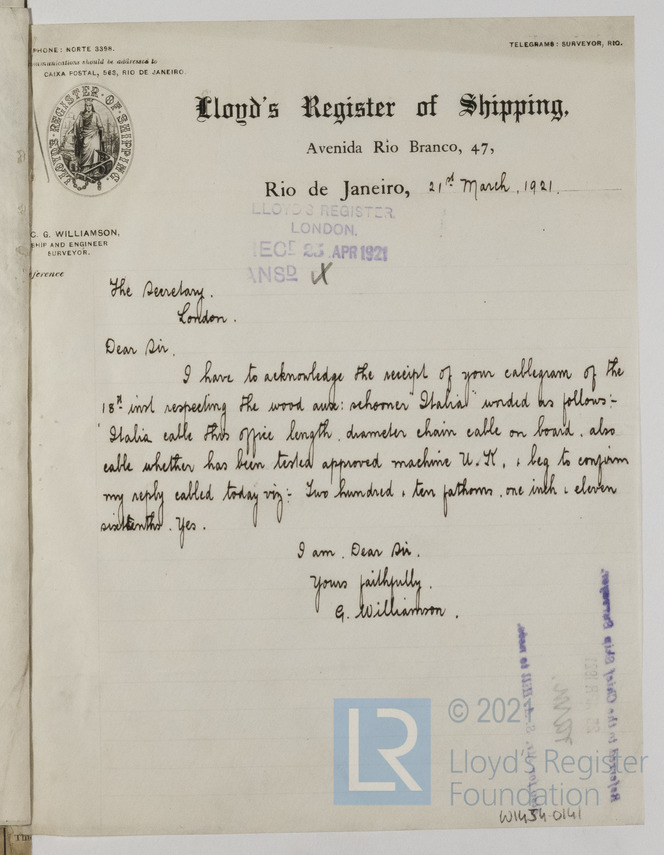 PHONE: NORTE 3358.
TELEGRAMS: SURVEYOR, RIO.
communications should be addressed to
CAIXA POSTAL, 563, RIO DE JANEIRO.
LLOYD'S REGISTER OF SHIPPING.
Lloyd's Register of Shipping,
Avenida Rio Branco, 47,
Rio de Janeiro, 21st March, 1921.
LLOYD'S REGISTER.
LONDON.
REC'D 23 APR 1921
ANSD
C. G. WILLIAMSON,
SHIP AND ENGINEER
SURVEYOR.
The Secretary.
London.
Dear Sir.
I have to acknowledge the receipt of your cablegram of the
18th inst respecting the wood aux: schooner "Italia" worded as follows:-
"Italia cable this office length, diameter chain cable on board, also
cable whether has been tested approved machine U.K, & beg to confirm
my reply cabled today viz:- Two hundred & ten fathoms, one inch & eleven
sixteenths. Yes.
I am, Dear Sir,
Yours faithfully.
G. Williamson.
© 2021
Lloyd's Register
Foundation
LR
W1454-0141